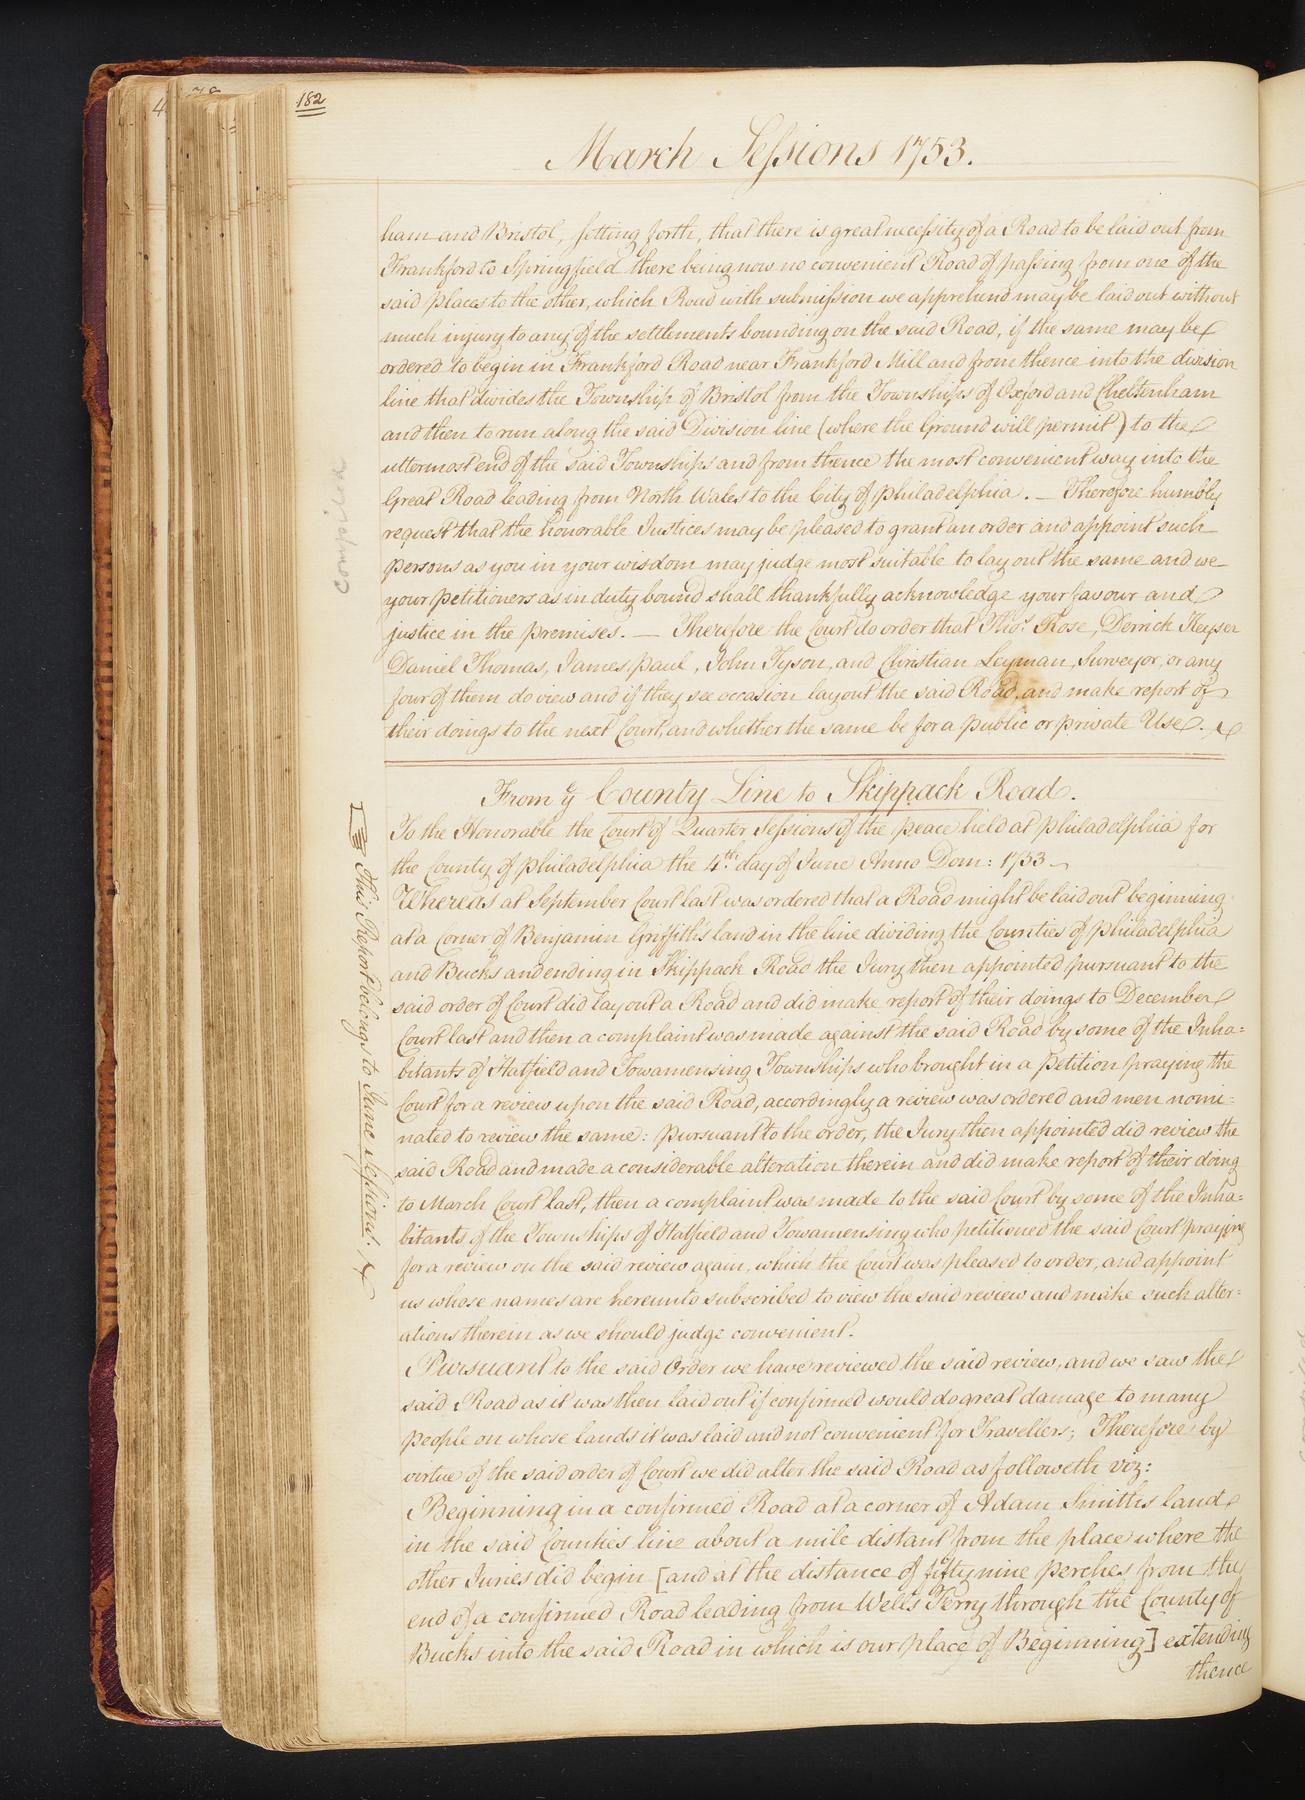 182
March Sessions 1753.
ham and Bristol, setting forth, that there is great necessity of a Road to be laid out from
Frankford to Springfield there being now no convenient Road of passing from one of the
said places to the other, which Road with submission we apprehend may be laid out without
much injury to any of the settlements bounding on the said Road, if the same may be
ordered to begin in Frankford Road near Frankford Mill and from thence into the division
line that divides the Township of Bristol from the Townships of Oxford and Cheltenham
and then to run along the said Division line (where the Ground will permit) to the
uttermost end of the said Townships and from thence the most convenient way into the
Great Road leading from North Wales to the City of Philadelphia. — Therefore humbly
request that the honorable Justices may be pleased to grant an order and appoint such
persons as you in your wisdom may judge most suitable to lay out the same and we
your petitioners as in duty bound shall thankfully acknowledge your favour and
justice in the premises. — Therefore the Court do order that Thos. Rose, Derrick Keyser
Daniel Thomas, James Paul, John Tyson, and Christian Leyman, Surveyor, or any
four of them do view and if they see occasion lay out the said Road and make report of
their doings to the next Court, and whether the same be for a public or private Use.
compiled
From ye County Line to Skippack Road.
To the Honorable the Court of Quarter Sessions of the peace held at Philadelphia for
the County of Philadelphia the 4th. day of June Anno Dom: 1753
Whereas at September Court last was ordered that a Road might be laid out beginning
at a Corner of Benjamin Griffith's land in the line dividing the Counties of Philadelphia
and Bucks and ending in Skippack Road the Jury then appointed pursuant to the
said order of Court did lay out a Road and did make report of their doings to December
Court last and then a complaint was made against the said Road by some of the Inha=
bitants of Hatfield and Towamensing Townships who brought in a Petition praying the
Court for a review upon the said Road, accordingly a review was ordered and men nomi=
nated to review the same: pursuant to the order, the Jury then appointed did review the
said Road and made a considerable alteration therein and did make report of their doing
to March Court last, then a complaint was made to the said Court by some of the Inha=
bitants of the Townships of Hatfield and Towamensing who petitioned the said Court praying
for a review on the said review again, which the Court was pleased to order, and appoint
us whose names are hereunto subscribed to view the said review and make such alter=
ations therein as we should judge convenient.
Pursuant to the said Order we have reviewed the said review, and we saw the
said Road as it was then laid out if confirmed would do great damage to many
people on whose lands it was laid and not convenient for Travellers; Therefore by
virtue of the said order of Court we did alter the said Road as followeth viz:
Beginning in a confirmed Road at a corner of Adam Smiths land
in the said Counties line about a mile distant from the place where the
other Juries did begin [and at the distance of fifty nine perches from the
end of a confirmed Road leading from Well's Ferry through the County of
Bucks into the said Road in which is our place of Beginning] extending
thence
This Report belongs to June Sessions.